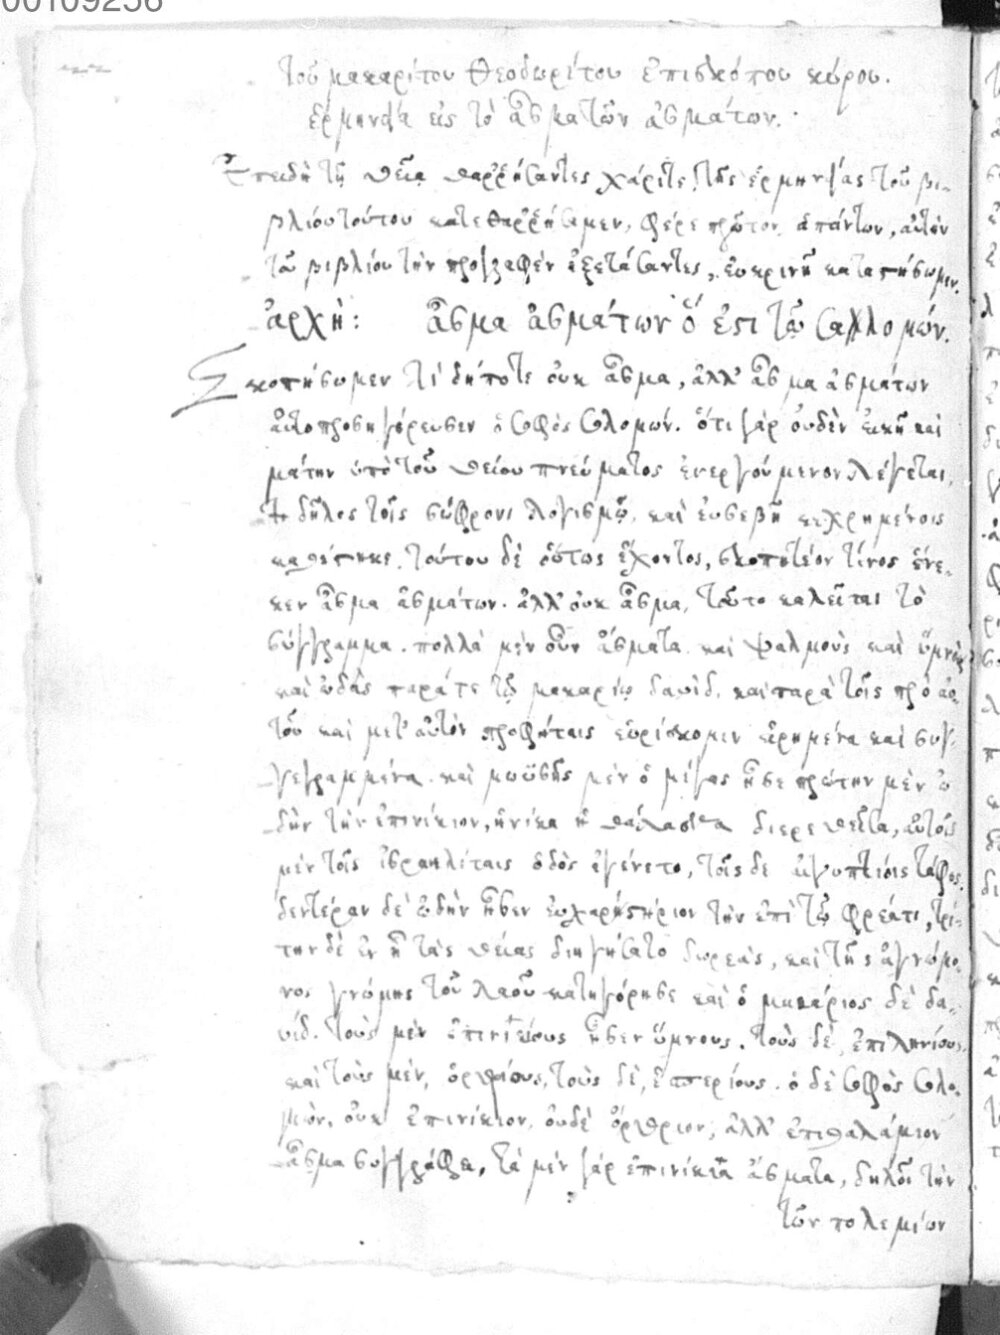 00109256
τοῦ μακαρίτου θεοδωρίτου ἐπισκόπου κύρου.
ἑρμηνεία εἰς τὸ ἆσμα τῶν ἀσμάτων.
Ἐπειδὴ τῇ θείᾳ θαρρήσαντες χάριτι, τῆς ἑρμηνείας τοῦ βι-
βλίου τούτου κατεθαρρήσαμεν, φέρε πρῶτον ἁπάντων, αὐτὴν
τοῦ βιβλίου τὴν προγραφὴν ἐξετάσαντες, εὐκρινῆ καταστήσωμεν.
ἀρχή: ἆσμα ἀσμάτων ὅ ἐστι τῷ σαλλομών.
Σκοπήσωμεν τί δήποτε οὐκ ἆσμα, ἀλλ' ἆσμα ἀσμάτων
αὐτὸ προσηγόρευσεν ὁ σοφὸς σολομών. ὅτι γὰρ οὐδὲν εἰκῆ καὶ
μάτην ὑπὸ τοῦ θείου πνεύματος ἐνεργούμενον λέγεται,
δῆλος τοῖς σώφρονι λογισμῷ, καὶ εὐσεβῆ κεχρημένοις
καθέστηκε. τούτου δὲ οὕτως ἔχοντος, σκοπητέον τίνος ἕνε-
κεν ἆσμα ἀσμάτων. ἀλλ' οὐκ ἆσμα, τοῦτο καλεῖται τὸ
σύγγραμμα. πολλὰ μὲν οὖν ἄσματα καὶ ψαλμοὺς καὶ ὕμνους
καὶ ᾠδὰς παρά τε τῷ μακαρίῳ δαυὶδ, καὶ παρὰ τοῖς πρὸ αὐ-
τοῦ καὶ μετ' αὐτὸν προφήταις εὑρίσκομεν εἰρημένα καὶ συγ-
γεγραμμένα. καὶ μωϋσῆς μὲν ὁ μέγας ᾖσε πρώτην μὲν ᾠ-
δὴν τὴν ἐπινίκιον, ἡνίκα ἡ θάλασσα διερεθεῖσα, αὐτοῖς
μὲν τοῖς ἰσραηλίταις ὁδὸς ἐγένετο, τοῖς δε αἰγυπτίοις τάφος.
δευτέραν δὲ ᾠδὴν ᾖσεν εὐχαρηστήριον τὴν ἐπὶ τῷ φρέατι, τρί-
την δὲ ἐν ᾗ τὰς θείας διηγήσατο δωρεὰς, καὶ τῆς ἀγνώμο-
νος γνώμης τοῦ λαοῦ κατηγόρησε καὶ ὁ μακάριος δὲ δα-
υίδ. τοὺς μὲν ἐπινικίους ᾖσεν ὕμνους. τοὺς δὲ, ἐπιληνίους,
καὶ τοὺς μὲν, ὀρθρίους, τοὺς δὲ, ἑσπερίους. ὁ δὲ σοφὸς σολο-
μὼν, οὐκ ἐπινίκιον, οὐδὲ ὄρθριον, ἀλλ' ἐπιθαλάμιον
ἆσμα συγγράφει, τὰ μὲν γὰρ ἐπινίκια ἄσματα, δηλοῖ τὴν
τῶν πολεμίων